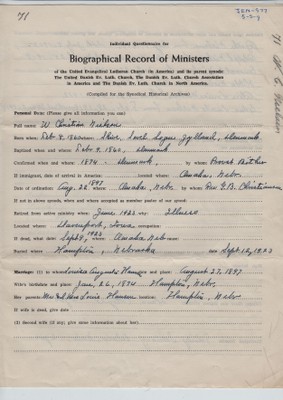 71
Individual Questionnaire for
Biographical Record of Ministers
of the United Evangelical Lutheran Church (in America) and its parent synods:
The United Danish Ev. Luth. Church, The Danish Ev. Luth. Church Association
in America and The Danish Ev. Luth. Church in North America.
(Compiled for the Synodical Historical Archives)
Personal Data: (Please give all information you can)
Full name: W. Christian Nielsen
Born when: Feb. 4, 1860 where: Skive, Sogn, Jylland, Denmark
Baptized when and where: Feb. 9, 1860, Denmark
Confirmed when and where: 1874 - Denmark, by whom: Provst
If immigrant, date of arrival in America: located where: Omaha, Nebr.
Date of ordination: Aug. 22 1897 where: Omaha, Nebr. by whom: Rev G.B. Christiansen
If not in above synods, when and where accepted as member pastor of our synod:
Retired from active ministry when: June, 1923 why: Illness
Located where: Davenport, Iowa occupation:
If dead, what date: Sept 9, 1923 where: Omaha Nebr cause:
Buried where Hampton, Nebraska date Sept 12, 1923
Marriage: (1) to whom Louisa Augusta Hansen date and place: August 27, 1897
Wife's birthdate and place: June, 26, 1874 Hampton, Nebr.
Her parents: Mr & Mrs Louis Hansen location: Hampton, Nebr
If wife is dead, give date
(2) Second wife (if any; give same information about her)
71 W. C. Nielsen